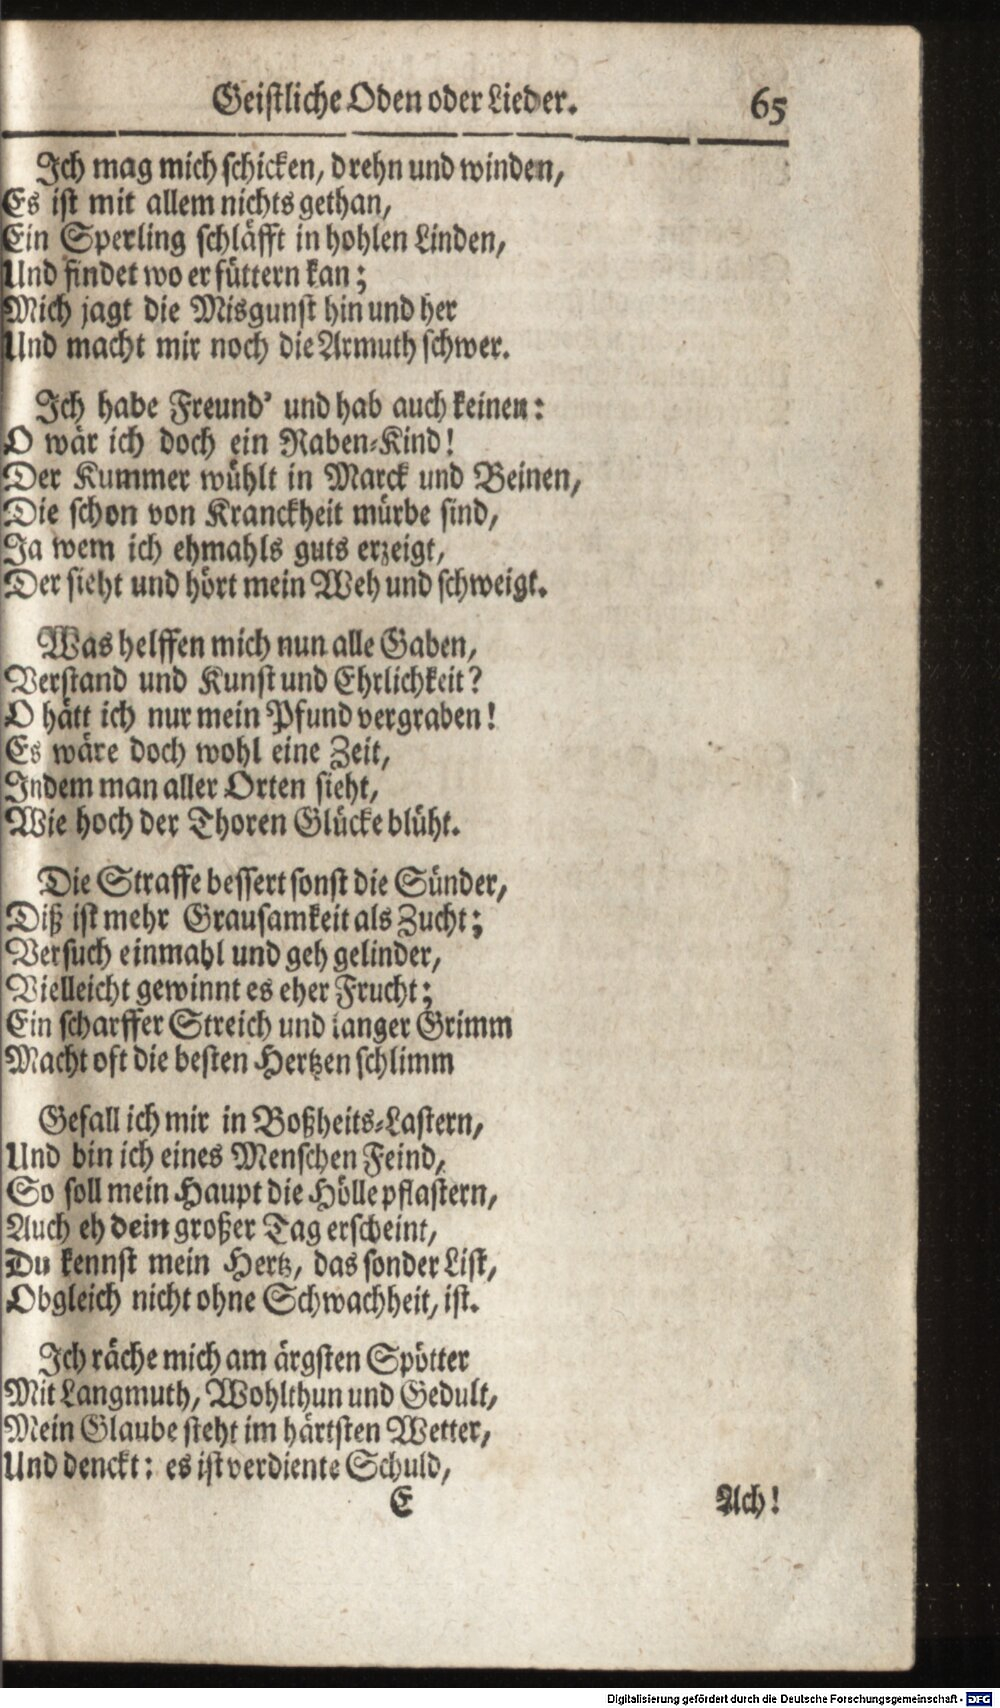 Geistliche Oden oder Lieder. 65
Ich mag mich schicken, drehn und winden,
Es ist mit allem nichts gethan,
Ein Sperling schläfft in hohlen Linden,
Und findet wo er füttern kan;
Mich jagt die Misgunst hin und her
Und macht mir noch die Armuth schwer.
Ich habe Freund' und hab auch keinen:
O wär ich doch ein Raben-Kind!
Der Kummer wühlt in Marck und Beinen,
Die schon von Kranckheit mürbe sind,
Ja wem ich ehmahls guts erzeigt,
Der sieht und hört mein Weh und schweigt.
Was helffen mich nun alle Gaben,
Verstand und Kunst und Ehrlichkeit?
O hätt ich nur mein Pfund vergraben!
Es wäre doch wohl eine Zeit,
Indem man aller Orten sieht,
Wie hoch der Thoren Glücke blüht.
Die Straffe bessert sonst die Sünder,
Diß ist mehr Grausamkeit als Zucht;
Versuch einmahl und geh gelinder,
Vielleicht gewinnt es eher Frucht;
Ein scharffer Streich und langer Grimm
Macht oft die besten Hertzen schlimm
Gefall ich mir in Boßheits-Lastern,
Und bin ich eines Menschen Feind,
So soll mein Haupt die Hölle pflastern,
Auch eh dein großer Tag erscheint,
Du kennst mein Hertz, das sonder List,
Obgleich nicht ohne Schwachheit, ist.
Ich räche mich am ärgsten Spötter
Mit Langmuth, Wohlthun und Gedult,
Mein Glaube steht im härtsten Wetter,
Und denckt: es ist verdiente Schuld,
E Ach!
Digitalisierung gefördert durch die Deutsche Forschungsgemeinschaft - DFG